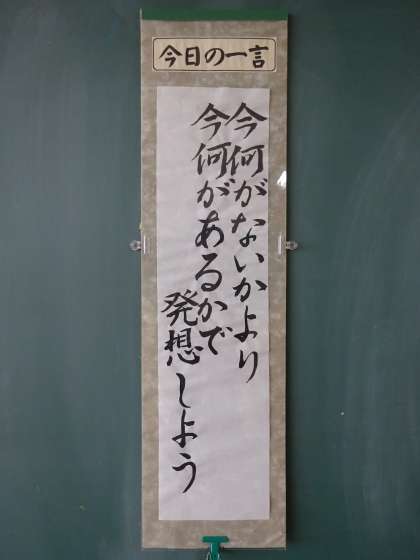 今日の一言
今何がないかより
今何があるかで
発想しよう